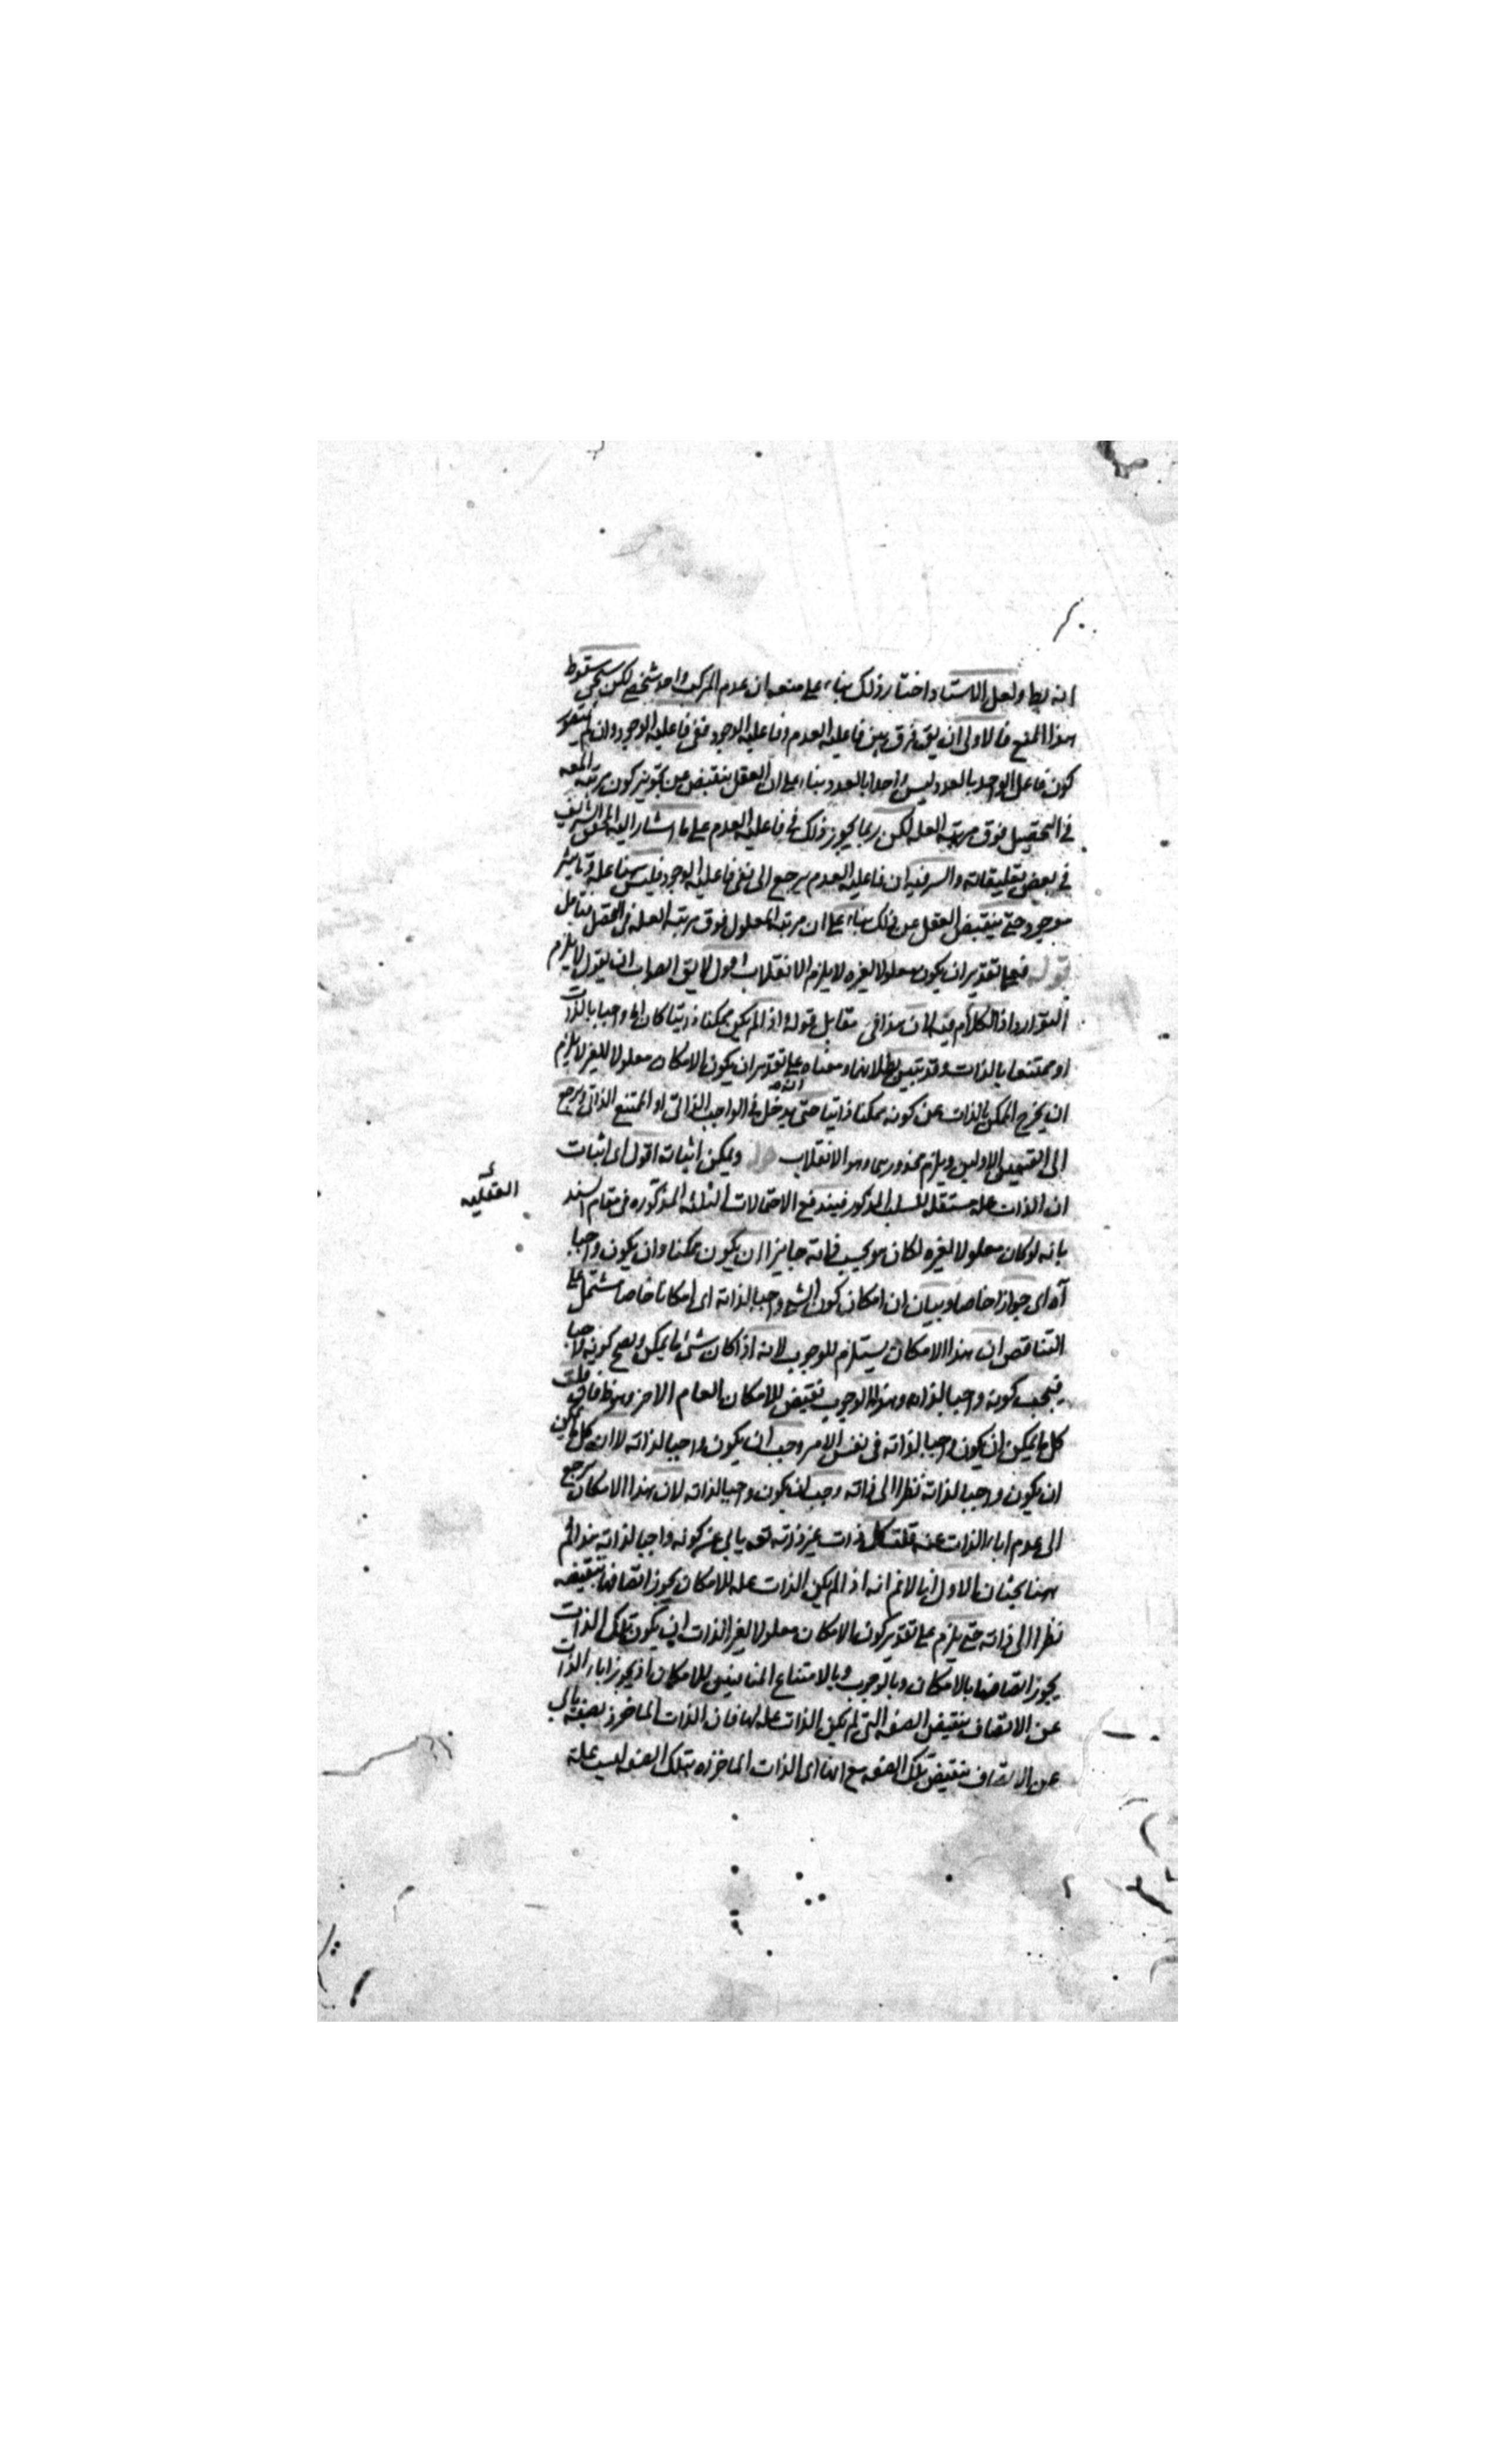 انه بط ولعل الاستاد اختار ذلك بناء على منعه ان عدم المركب واحد شخصي لكن سيجئ سقوط
هذا المنع فالاولى ان يق فرق بين فاعلية العدم وفاعلية الوجود ففي فاعلية الوجود وان لم
كون فاعل الواحد بالعدد ليس واحدا بالعدد بناء على ان العقل ينقبض عن تجويز كون مرتبة المعه
في التحصيل فوق مرتبة العلة لكن ربما يجوز ذلك في فاعلية العدم على ما اشار اليه المحقق الشريف
في بعض تعليقاته والسر فيه ان فاعلية العدم يرجع الى نفي فاعلية الوجود فليس هنا علة وتاثير
موجود حتى ينقبض العقل عن ذلك بناء على ان مرتبة المعلول فوق مرتبة العلة في التحصل فتامل
قوله فعلى تقدير ان يكون معلولا لغيره لا يلزم الانقلاب اقول لا يق الصواب ان يقول لا يلزم
التوارد اذ الكلام فيه لان هذا في مقابل قوله اذ لم يكن ممكنا ذاتيا كان اما واجبا بالذات
او ممتنعا بالذات وقد تبين بطلانهما ومعناه على تقدير ان يكون الامكان معلولا للغير لا يلزم
ان يخرج الممكن بالذات عن كونه ممكنا ذاتيا حتى يدخل في الواجب الذاتي او الممتنع الذاتي ويرجع
الى القسمين الاولين ويلزم محذورهما وهو الانقلاب قوله ويمكن اثباته اقول اى اثبات
ان الذات علة مستقلة للسلب المذكور فيندفع الاحتمالات الثلثة المذكوره في مقام السند
العقليه
بانه لو كان معلولا لغيره لكان هو بحسب ذاته جايزا ان يكون ممكنا وان يكون واجبا
آه اى جوازا خاصا وبيان ان امكان كون الشئ واجبا لذاته اى امكانا خاصا مشتمل على
التناقض ان هذا الامكان يستلزم للوجوب لانه اذا كان شئ ما يمكن ويصح كونه واجبا
فيجب كونه واجبا لذاته وهذا الوجوب نقيض للامكان العام الاخر
كل ما يمكن ان يكون واجبا لذاته في نفس الامر وجب ان يكون واجبا لذاته لا ان كل ما يمكن
ان يكون واجبا لذاته نظرا الى ذاته وجب ان يكون واجبا لذاته لان هذا الامكان يرجع
الى عدم اباء الذات عنه قلت كل ذات غير ذاته تعه يابى عن كونه واجبا لذاته
ههنا بحثان الاول انا لا نم انه اذا لم يكن الذات علة للامكان يجوز اتصافها بنقيضه
نظرا الى ذاته حتى يلزم على تقدير كون الامكان معلولا لغير الذات ان يكون تلك الذات
يجوز اتصافها بالامكان وبالوجوب وبالامتناع المنافيين للامكان اذ يجوز اباء الذات
عن الاتصاف بنقيض الصفه التي لم يكن الذات علة لها فان الذات الماخوذ بصفة يابى
عن الاتصاف بنقيض تلك الصفه مع انها اى الذات الماخوذه بتلك الصفه ليست علة